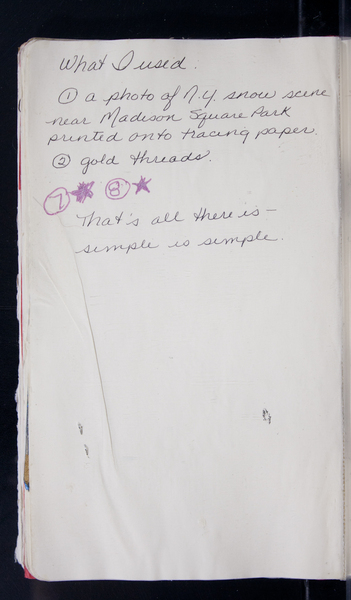 What I used.
① a photo of N.Y. snow scene
near Madison Square Park
printed onto tracing paper.
② gold threads.
⑦ ★ ⑧ ★
That's all there is —
simple is simple.